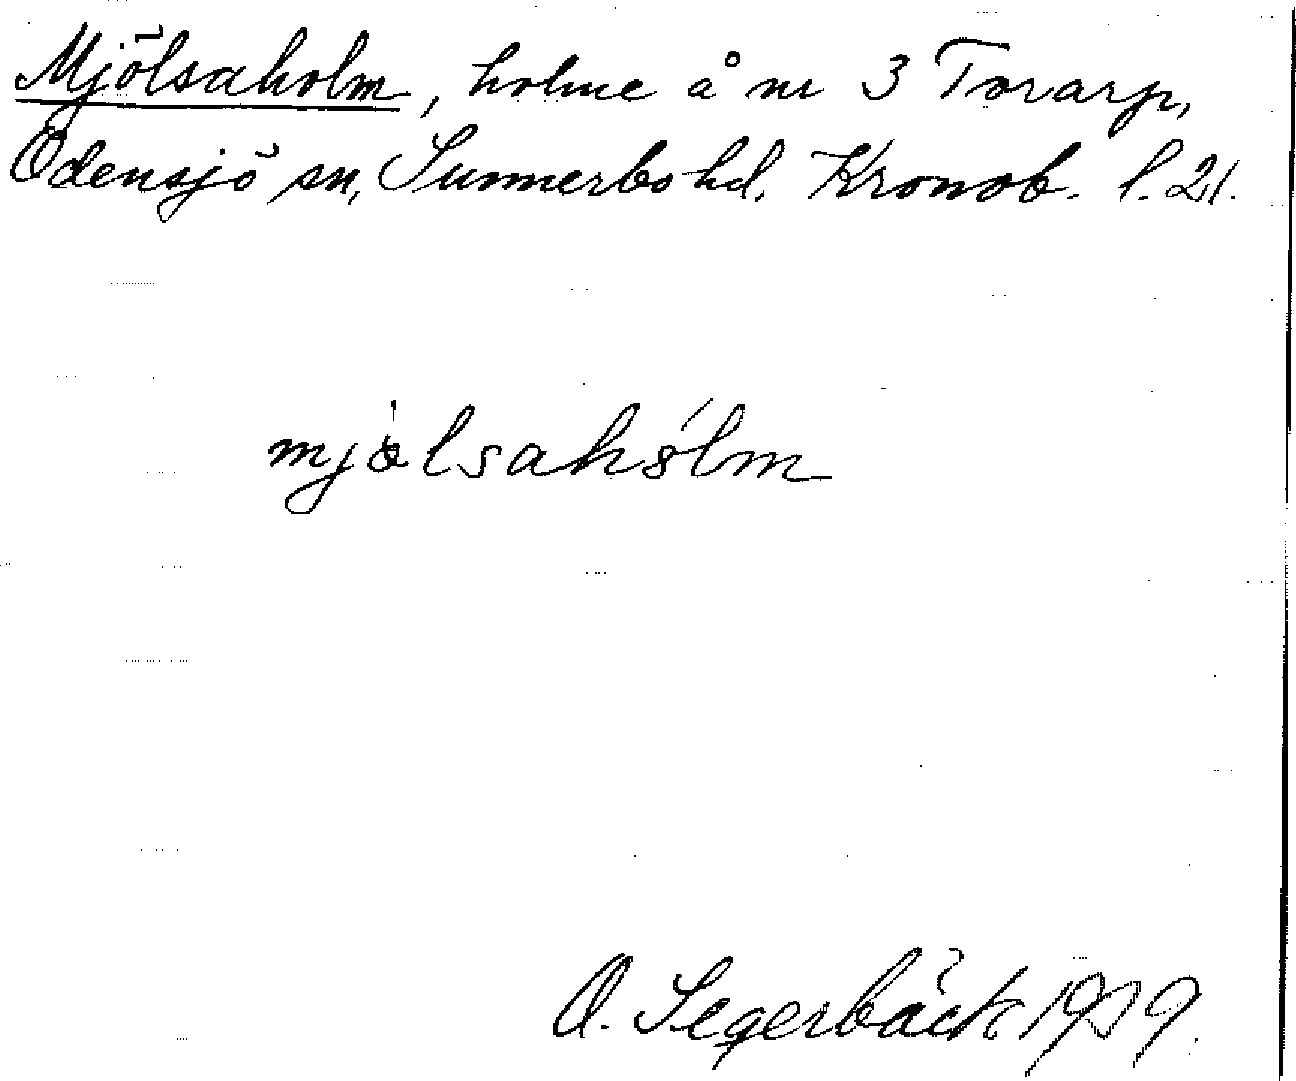 Mjölsaholm, holme å nr 3 Torarp,
Odensjö sn, Sunnerbo hd. Kronob. l. 21.
mjölsahólm
O. Segerbäck 1919.